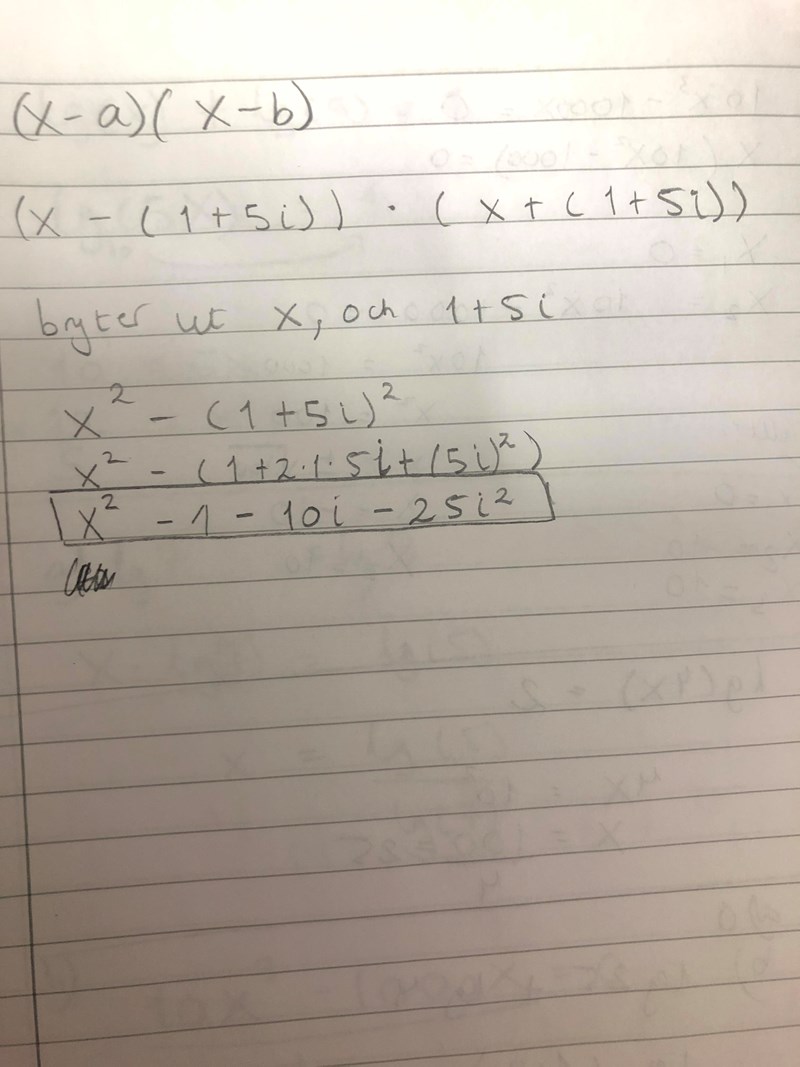 (x-a)(x-b)
(x - (1+5i)) · (x + (1+5i))
byter ut x, och 1+5i
x² - (1+5i)²
x² - (1+2·1·5i+(5i)²)
x² - 1 - 10i - 25i²